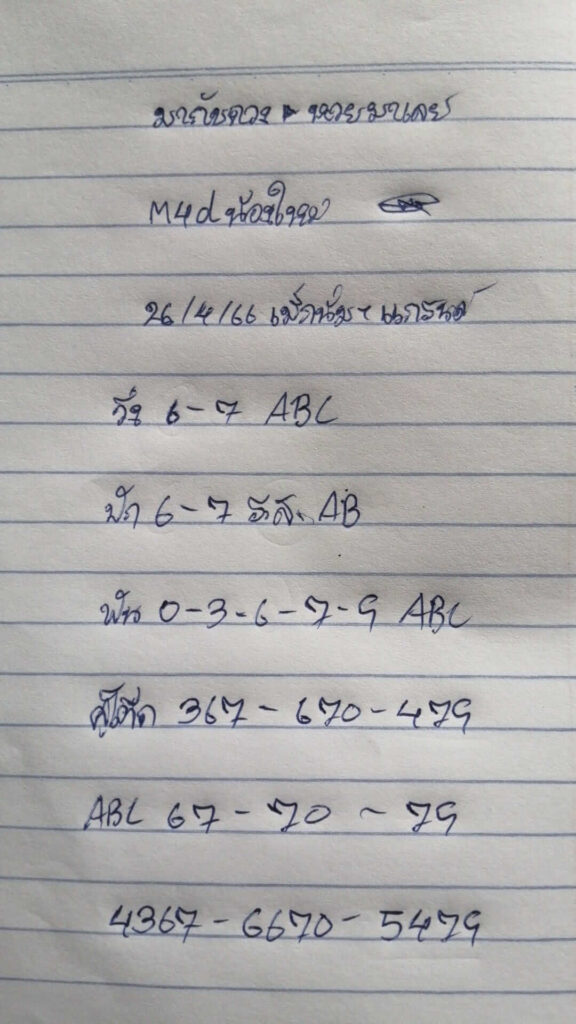 มากับดวง หวยมาเลย์
M4d น้องใหม่
26/4/66 แม็กนั่ม - แกรนด์
วิ่ง 6-7 ABC
ปัก 6-7 AB
ฟัน 0-3-6-7-9 ABC
367-670-479
ABC 67-70-79
4367-6670-5479